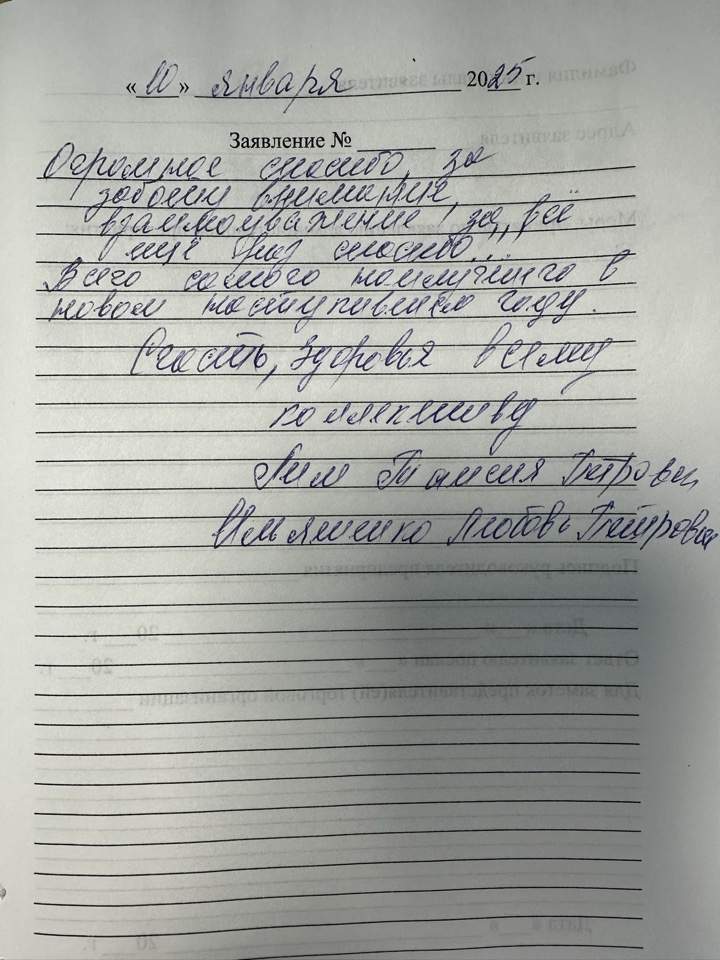 «10» января 2025 г.
Заявление № ______
Огромное спасибо, за
заботу внимание,
взаимоуважение, за всё
ещё раз спасибо...
Всего самого наилучшего в
новом наступившем году.
Счастья, здоровья всему
коллективу
Лим Таисия Петровна
Ильяшенко Любовь Петровна